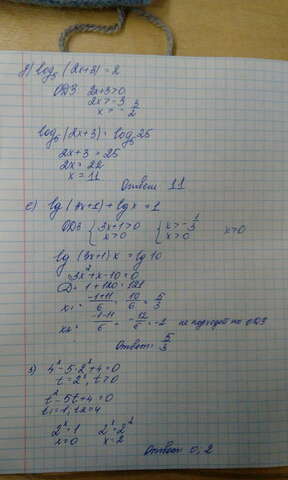 д) log₅(2x+3)=2
ОДЗ 2x+3>0
2x>-3
x>-3/2
log₅(2x+3)=log₅25
2x+3=25
2x=22
x=11
Ответ 11
е) lg(3x+1)+lgx=1
ОДЗ {3x+1>0 {x>-1/3
x>0 x>0 x>0
lg(3x+1)x=lg10
3x²+x-10=0
D=1+120=121
x₁=(-1+11)/6=10/6=5/3
x₂=(-1-11)/6=-12/6=-2 не подходит по ОДЗ
Ответ: 5/3
з) 4ˣ-5·2ˣ+4=0
t=2ˣ, t>0
t²-5t+4=0
t₁=1, t₂=4
2ˣ=1 2ˣ=2²
x=0 x=2
Ответ 0, 2